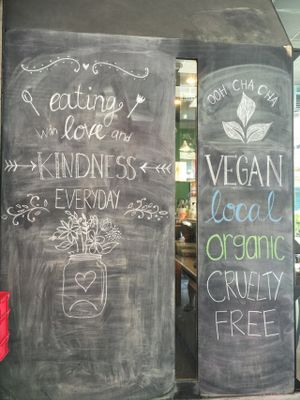 eating
with love and
KINDNESS
EVERYDAY
OOH CHA CHA
VEGAN
local
organic
CRUELTY
FREE